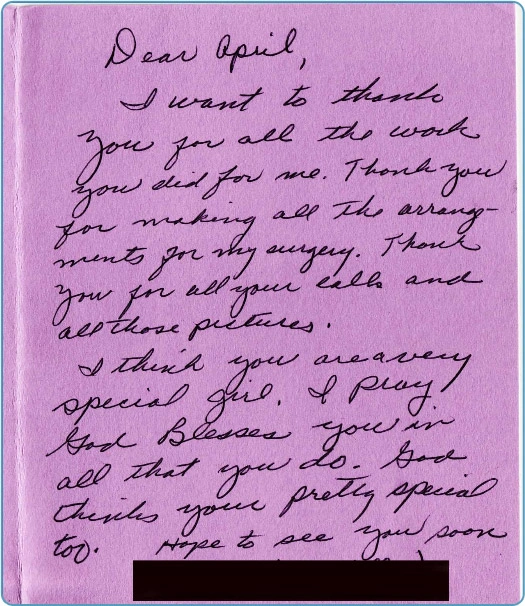 Dear April,
I want to thank
you for all the work
you did for me. Thank you
for making all the arrang-
ments for my surgery. Thank
you for all your calls and
all those pictures.
I think you are a very
special girl. I pray
God Blesses you in
all that you do. God
thinks your pretty special
too. Hope to see you soon